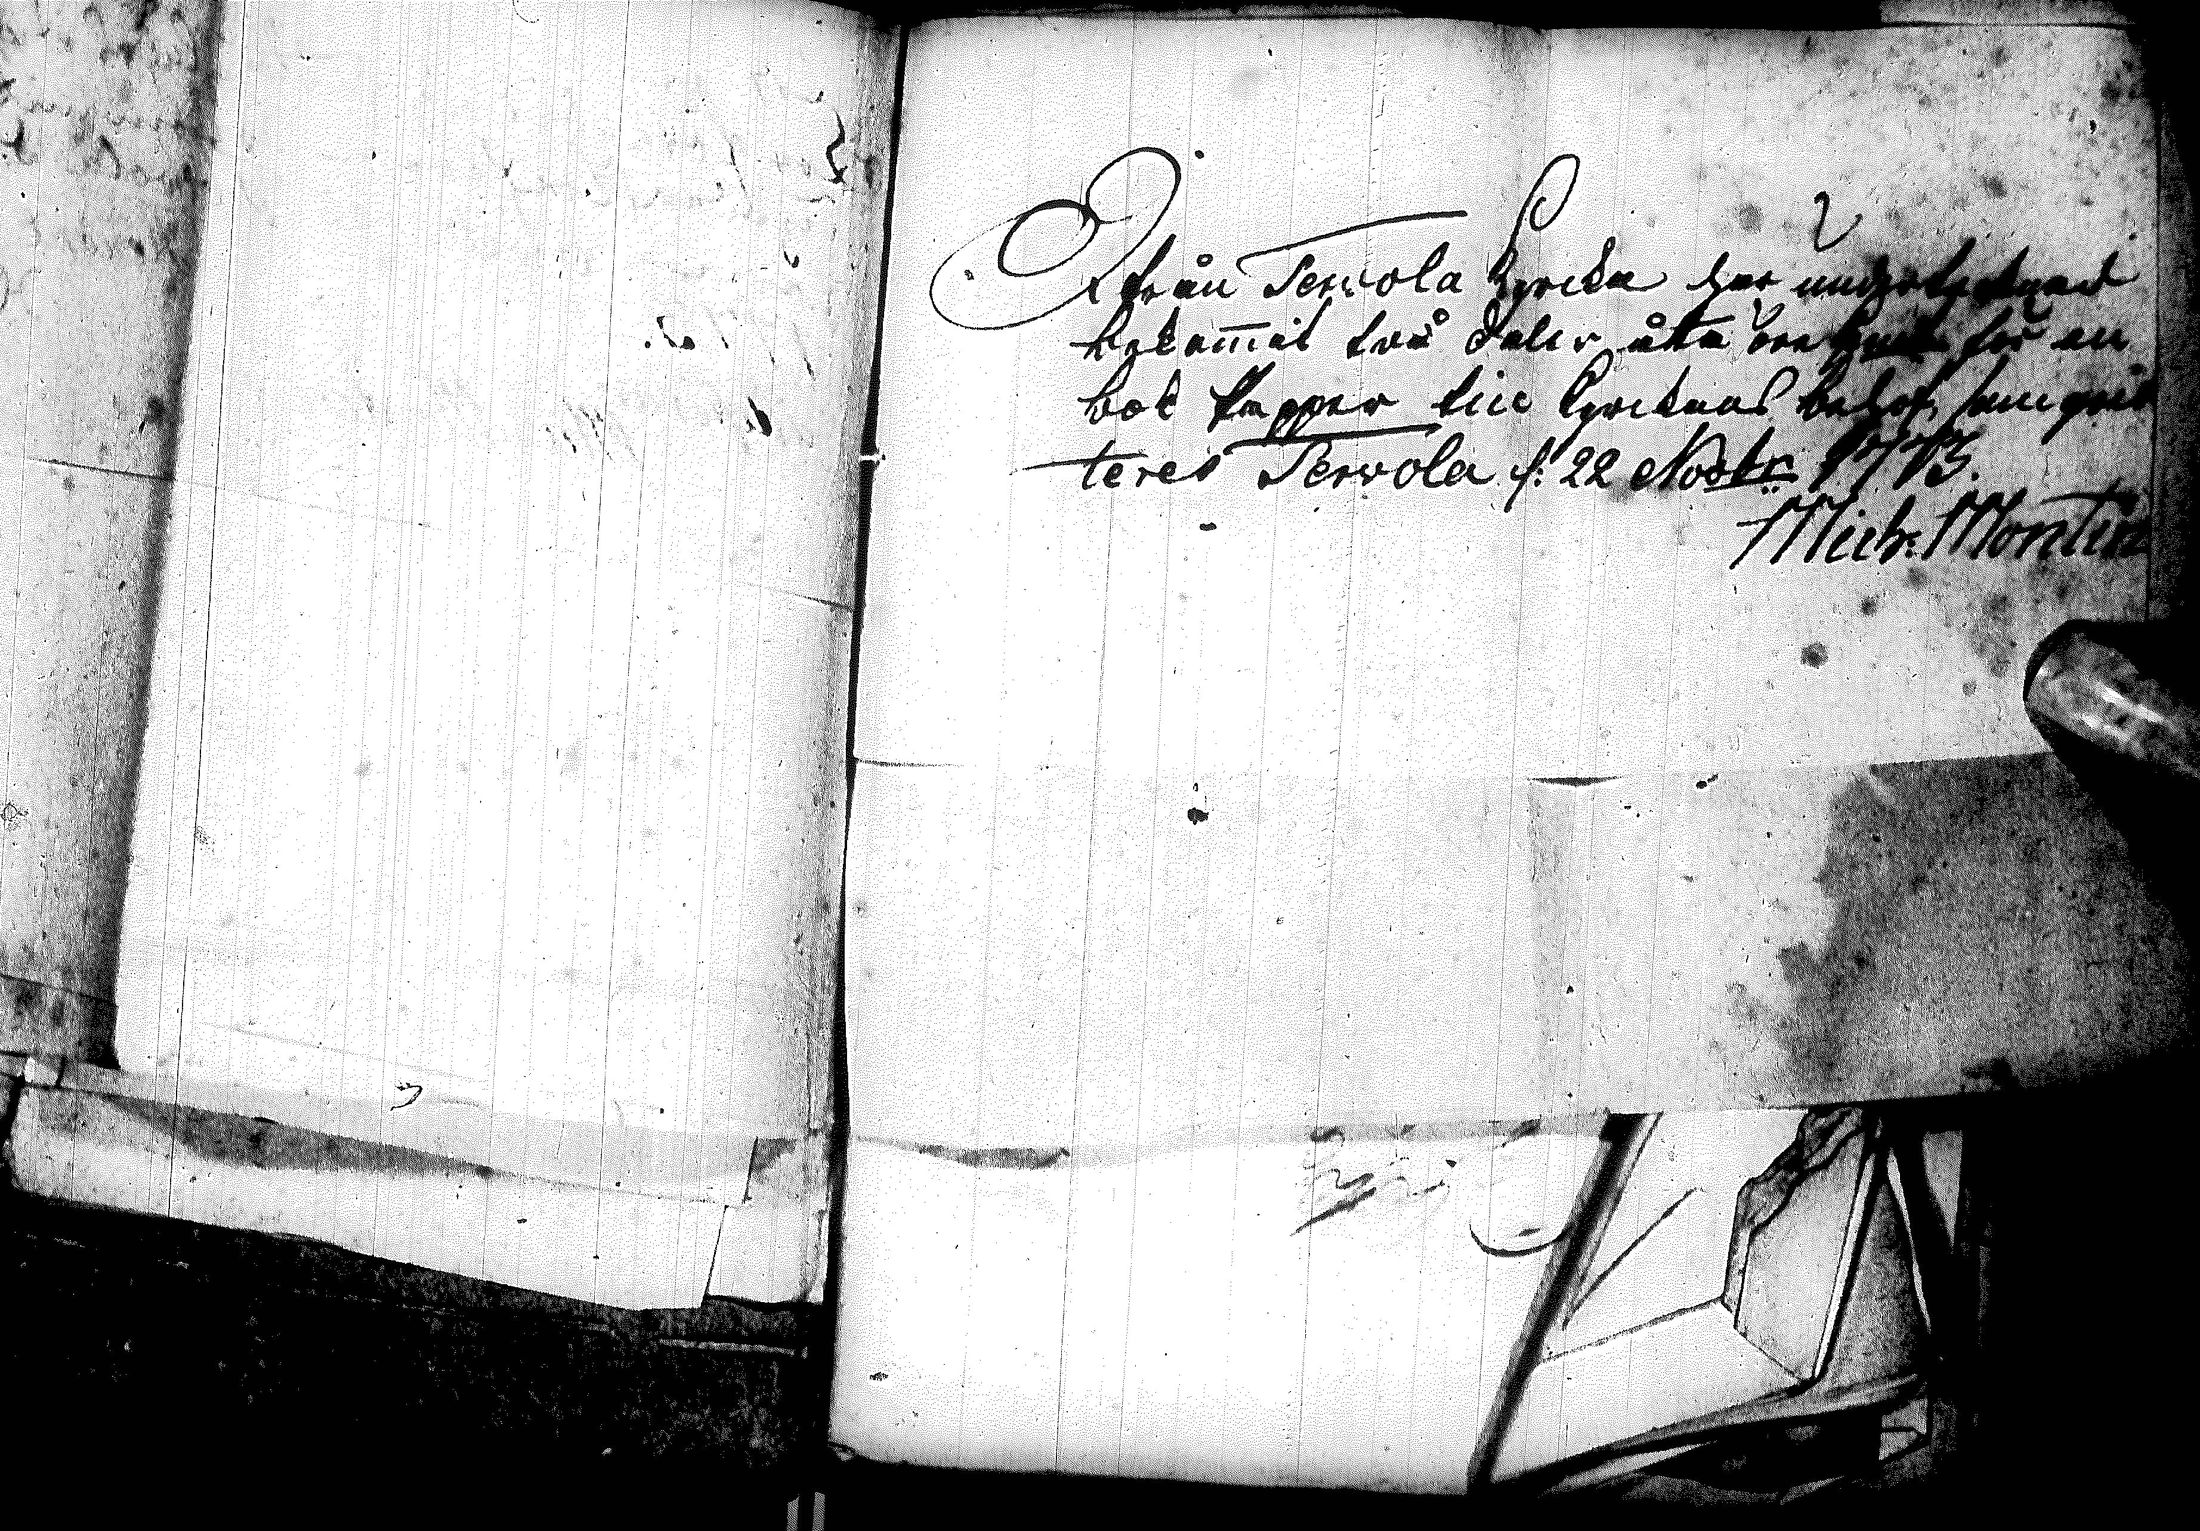 Ifrån Tervola Kyrcka har undertecknad
bekommit två daler åtta öre kmt för en
bok papper till Kyrckans behof, som qvit
teres Tervola d: 22 Novbr 1773.
Mich: Montin